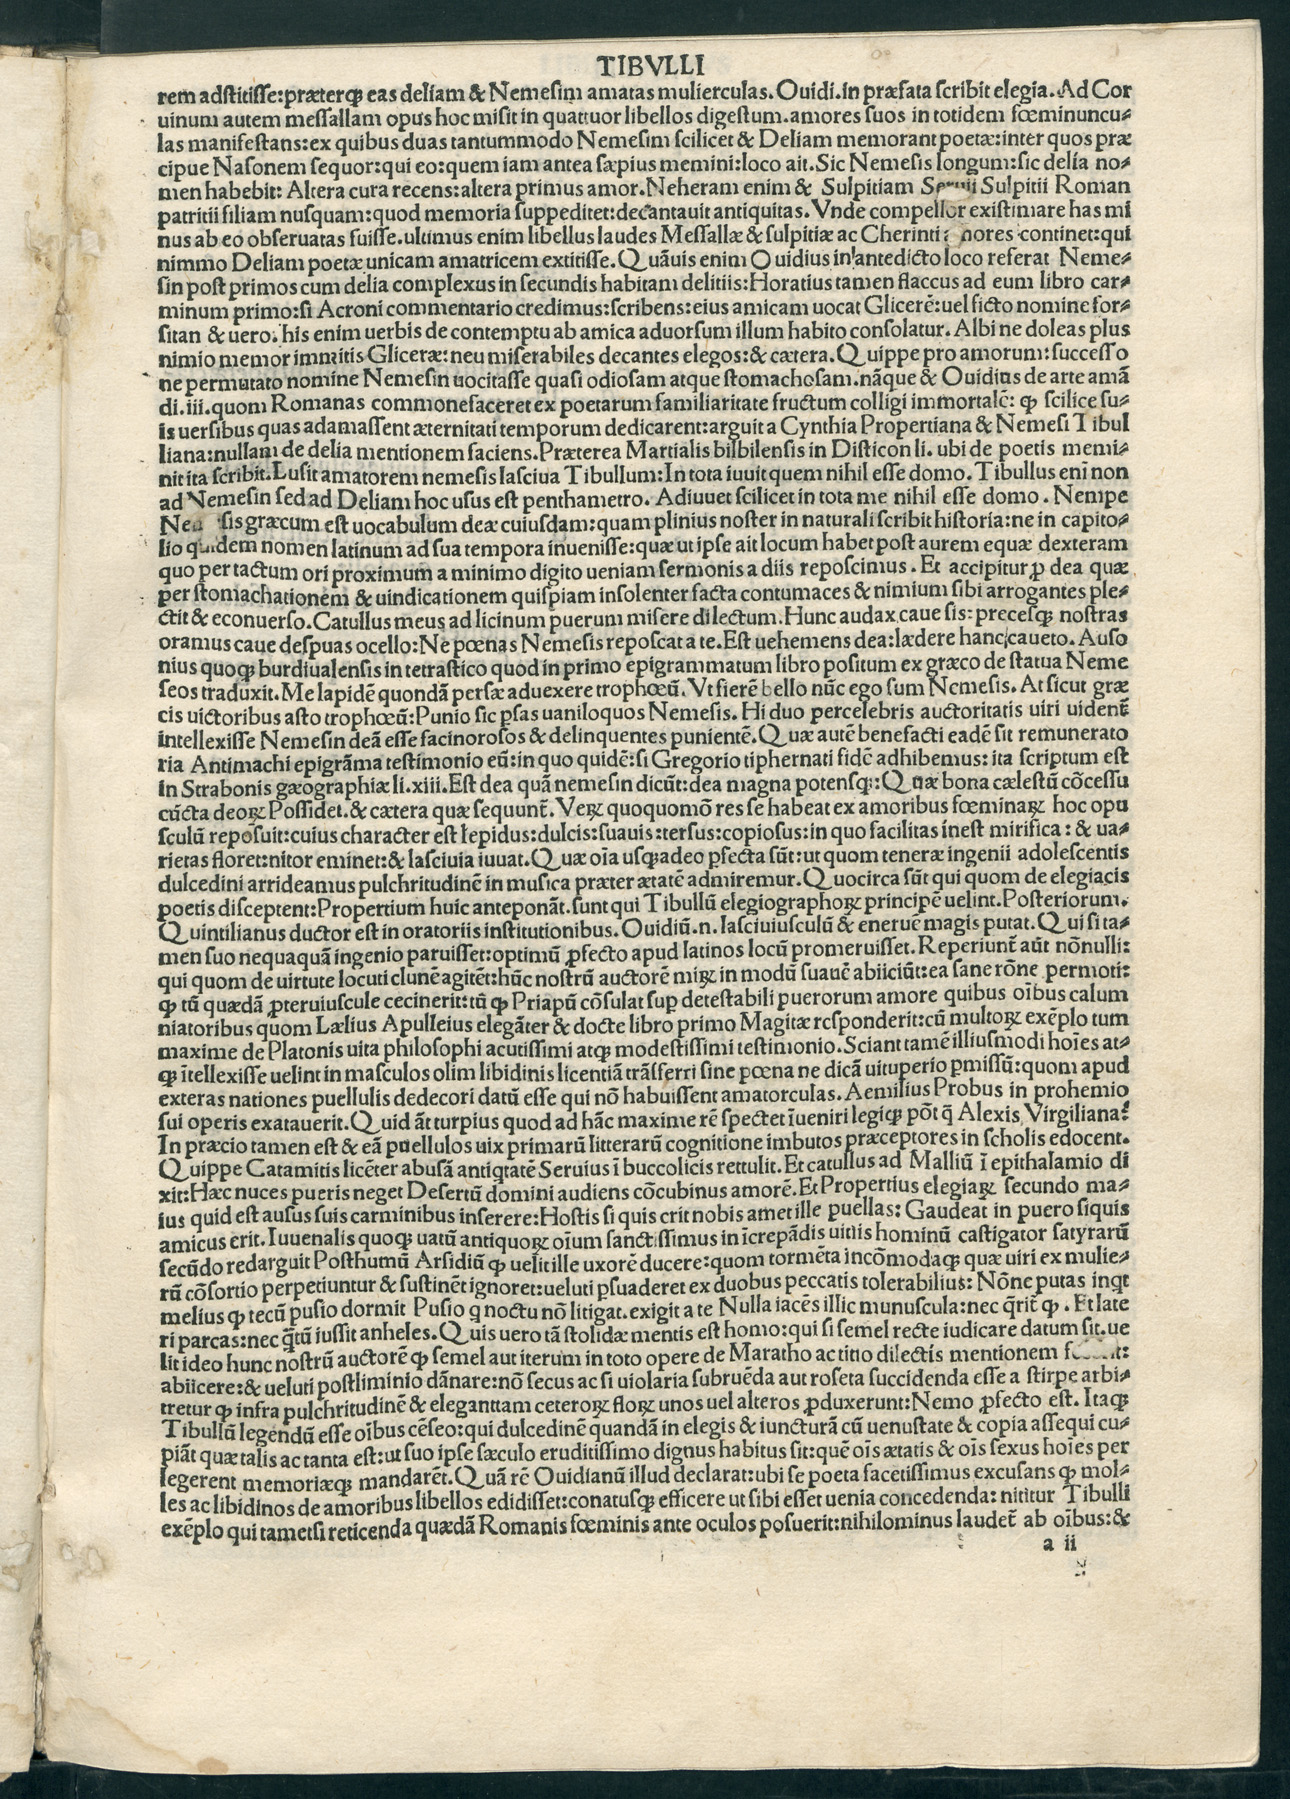 TIBVLLI
rem adstitisse:præterqꝫ eas deliam & Nemesim amatas mulierculas. Ouidi. in præfata scribit elegia. Ad Cor
uinum autem messallam opus hoc misit in quattuor libellos digestum. amores suos in totidem fœminuncu-
las manifestans: ex quibus duas tantummodo Nemesim scilicet & Deliam memorant poetæ: inter quos præ
cipue Nasonem sequor: qui eo: quem iam antea sæpius memini: loco ait. Sic Nemesis longum: sic delía no-
men habebit: Altera cura recens: altera primus amor. Neheram enim & Sulpitiam Sulpitii Roman
patritii filiam nusquam: quod memoria suppeditet: decantauit antiquitas. Vnde compellor existimare has mi
nus ab eo obseruatas fuisse. ultimus enim libellus laudes Messallæ & sulpitiæ ac Cherinti continet: qui
nimmo Deliam poetæ unicam amatricem extitisse. Quãuis enim Ouidius in antedicto loco referat Neme-
sin post primos cum delia complexus in secundis habitam delitiis: Horatius tamen flaccus ad eum libro car-
minum primo: si Acroni commentario credimus: scribens: eius amicam uocat Glicerẽ: uel ficto nomine for-
sitan & uero. his enim uerbis de contemptu ab amica aduorsum illum habito consolatur. Albi ne doleas plus
nimio memor immitis Gliceræ: neu miserabiles decantes elegos: & cætera. Quippe pro amorum: successo
ne permutato nomine Nemesin uocitasse quasi odiosam atque stomachosam. nãque & Ouidius de arte amã
di. iii. quom Romanas commonefaceret ex poetarum familiaritate fructum colligi immortalẽ: qꝫ scilice su-
is uersibus quas adamassent æternitati temporum dedicarent: arguit a Cynthia Propertiana & Nemesi Tibul
liana: nullam de delia mentionem faciens. Præterea Martialis bilbilensis in Disticon li. ubi de poetis memi-
nit ita scribit. Lusit amatorem nemesis lasciua Tibullum: In tota iuuit quem nihil esse domo. Tibullus enĩ non
ad Nemesin sed ad Deliam hoc usus est penthametro. Adiuuet scilicet in tota me nihil esse domo. Nempe
græcum est uocabulum deæ cuiusdam: quam plinius noster in naturali scribit historia: ne in capito-
lio quidem nomen latinum ad sua tempora inuenisse: quæ ut ipse ait locum habet post aurem equæ dexteram
quo per tactum ori proximum a minimo digito ueniam sermonis a diis reposcimus. Et accipitur ꝓ dea quæ
per stomachationem & uindicationem quispiam insolenter facta contumaces & nimium sibi arrogantes ple-
ctit & econuerso. Catullus meus ad licinum puerum misere dilectum. Hunc audax caue sis: precesqꝫ nostras
oramus caue despuas ocello: Ne pœnas Nemesis reposcat a te. Est uehemens dea: lædere hanc caueto. Auso
nius quoqꝫ burdiualensis in tetrastico quod in primo epigrammatum libro positum ex græco de statua Neme
seos traduxit. Me lapidẽ quondã persæ aduexere trophœũ. Vt fierẽ bello nũc ego sum Nemesis. At sicut græ
cis uictoribus asto trophœũ: Punio sic ꝑsas uaniloquos Nemesis. Hi duo percelebris auctoritatis uiri uidenť
intellexisse Nemesin deã esse facinorosos & delinquentes punientẽ. Quæ autẽ benefacti eadẽ sit remunerato
ria Antimachi epigrãma testimonio eũ: in quo quidẽ: si Gregorio tiphernati fidẽ adhibemus: ita scriptum est
in Strabonis gæographiæ li. xiii. Est dea quã nemesin dicũt: dea magna potensqꝫ: Quæ bona cælestũ cõcessu
cũcta deoꝝ Possidet. & cætera quæ sequunť. Veꝝ quoquomõ res se habeat ex amoribus fœminaꝝ hoc opu
sculũ reposuit: cuius character est lepidus: dulcis: suauis: tersus: copiosus: in quo facilitas inest mirifica: & ua-
rietas floret: nitor eminet: & lasciuia iuuat. Quæ oĩa usqꝫadeo ꝑfecta sũt: ut quom teneræ ingenii adolescentis
dulcedini arrideamus pulchritudinẽ in musica præter ætatẽ admiremur. Quocirca sũt qui quom de elegiacis
poetis disceptent: Propertium huic anteponãt. sunt qui Tibullũ elegiographoꝝ principẽ uelint. Posteriorum.
Quintilianus ductor est in oratoriis institutionibus. Ouidiũ. n. lasciuiusculũ & eneruẽ magis putat. Qui si ta-
men suo nequaquã ingenio paruisset: optimũ ꝓfecto apud latinos locũ promeruisset. Reperiunť aũt nõnulli:
qui quom de uirtute locuti clunẽ agitẽt: hũc nostrũ auctorẽ miꝝ in modũ suauẽ abiiciũt: ea sane rõne permoti:
qꝫ tũ quædã ꝓteruiuscule cecinerit: tũ qꝫ Priapũ cõsulat suꝑ detestabili puerorum amore quibus oĩbus calum
niatoribus quom Lælius Apulleius elegãter & docte libro primo Magitæ responderit: cũ multoꝝ exẽplo tum
maxime de Platonis uita philosophi acutissimi atqꝫ modestissimi testimonio. Sciant tamẽ illiusmodi hoĩes at-
qꝫ ĩtellexisse uelint in masculos olim libidinis licentiã trãsferri sine pœna ne dicã uituperio ꝑmissũ: quom apud
exteras nationes puellulis dedecori datũ esse qui nõ habuissent amatorculas. Aemilius Probus in prohemio
sui operis exatauerit. Quid ãt turpius quod ad hãc maxime rẽ spectet ĩueniri legiqꝫ põt q̃ Alexis Virgiliana?
In præcio tamen est & eã puellulos uix primarũ litterarũ cognitione imbutos præceptores in scholis edocent.
Quippe Catamitis licẽter abusã antiqtatẽ Seruius ĩ buccolicis rettulit. Et catullus ad Malliũ ĩ epithalamio di
xit: Hæc nuces pueris neget Desertũ domini audiens cõcubinus amorẽ. Et Propertius elegiaꝝ secundo ma-
ius quid est ausus suis carminibus inserere: Hostis si quis erit nobis amet ille puellas: Gaudeat in puero siquis
amicus erit. Iuuenalis quoqꝫ uatũ antiquoꝝ oĩum sanctissimus in ĩcrepãdis uitiis hominũ castigator satyrarũ
secũdo redarguit Posthumũ Arsidiũ qꝫ uelit ille uxorẽ ducere: quom tormẽta incõmodaqꝫ quæ uiri ex mulie-
rũ cõsortio perpetiuntur & sustinẽt ignoret: ueluti ꝑsuaderet ex duobus peccatis tolerabilius: Nõne putas inqt
melius qꝫ tecũ pusio dormit Pusio q noctu nõ litigat. exigit a te Nulla iacẽs illic munuscula: nec q̃rit̃ qꝫ. Et late
ri parcas: nec q̃tũ iussit anheles. Quis uero tã stolidæ mentis est homo: qui si semel recte iudicare datum sit. ue
lit ideo hunc nostrũ auctorẽ qꝫ semel aut iterum in toto opere de Maratho ac titio dilectis mentionem
abiicere: & ueluti postliminio dãnare: nõ secus ac si uiolaria subruẽda aut roseta succidenda esse a stirpe arbi-
tretur qꝫ infra pulchritudinẽ & eleganttam ceteroꝝ floꝝ unos uel alteros ꝓduxerunt: Nemo ꝓfecto est. Itaqꝫ
Tibullũ legendũ esse oĩbus cẽseo: qui dulcedinẽ quandã in elegis & iuncturã cũ uenustate & copia assequi cu-
piãt quæ talis ac tanta est: ut suo ipse sæculo eruditissimo dignus habitus sit: quẽ oĩs ætatis & oĩs sexus hoĩes per
legerent memoriæqꝫ mandarẽt. Quã rẽ Ouidianũ illud declarat: ubi se poeta facetissimus excusans qꝫ mol-
les ac libidinos de amoribus libellos edidisset: conatusqꝫ efficere ut sibi esset uenia concedenda: nititur Tibulli
exẽplo qui tametsi reticenda quædã Romanis fœminis ante oculos posuerit: nihilominus laudeť ab oĩbus: &
a ii